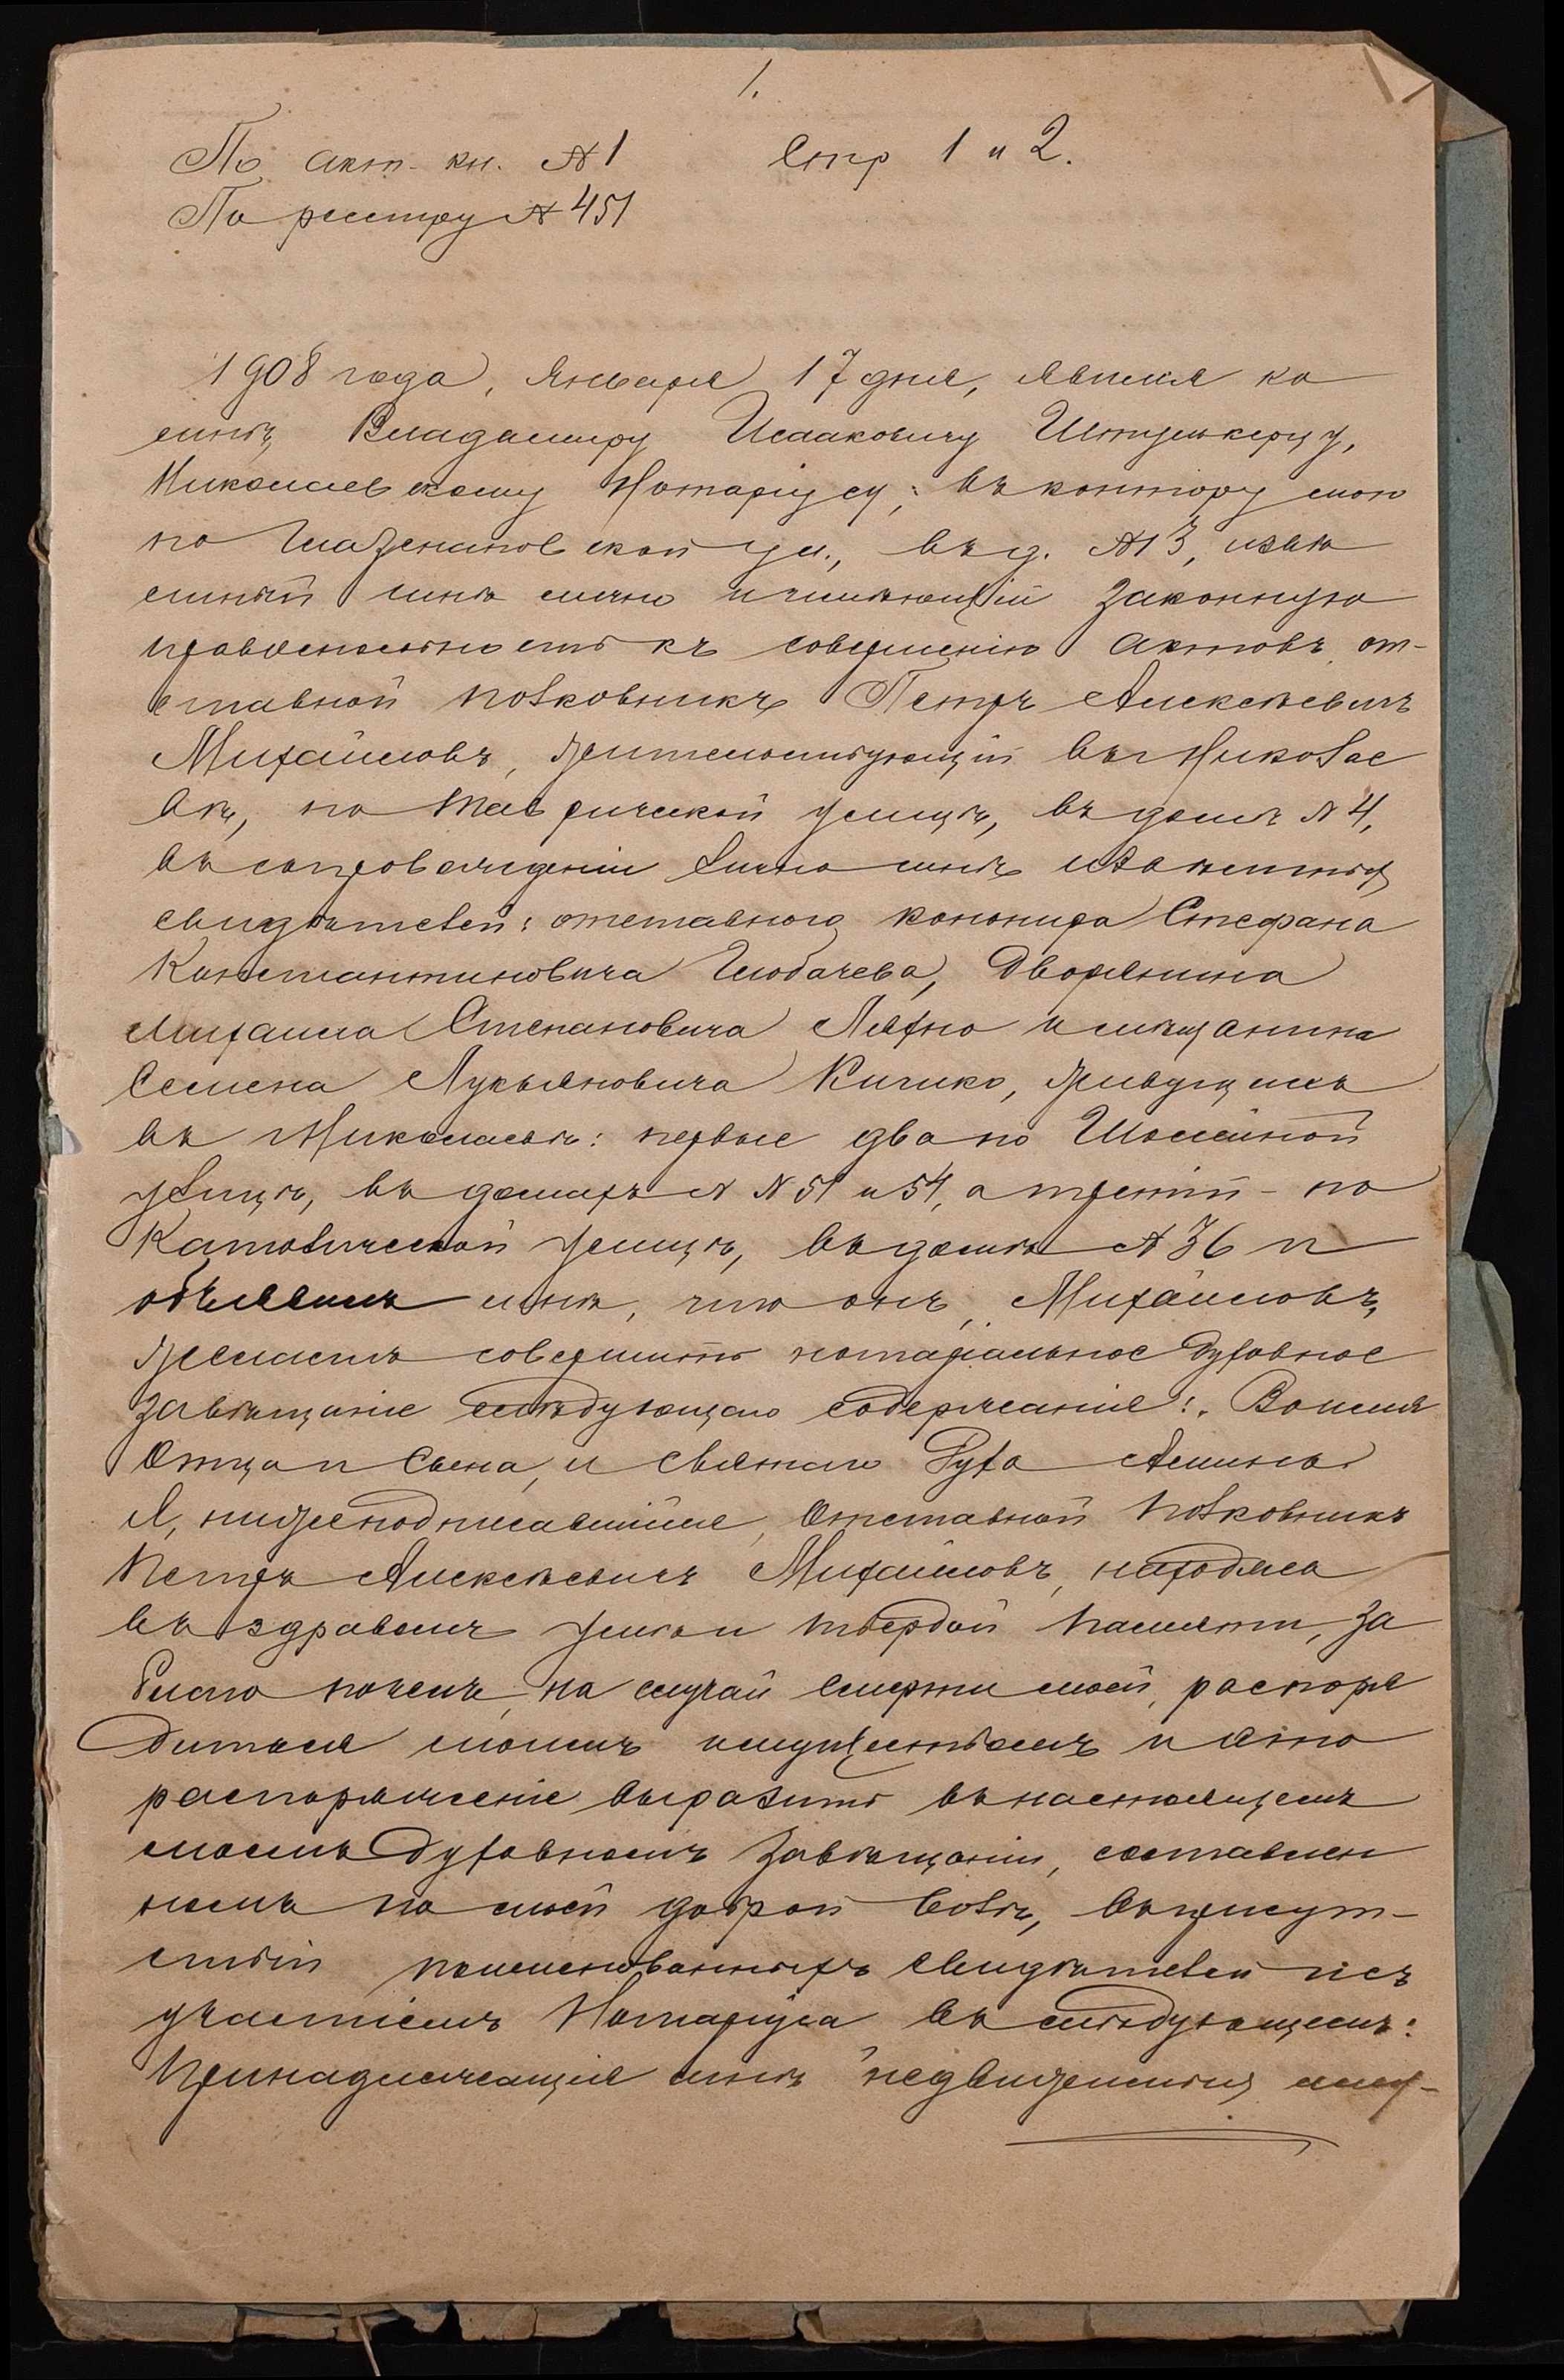 1.
По акт. кн. № 1 Стр 1 и 2.
По реестру № 451
1908 года, Января 17 дня, явился ко
мнѣ, Владимиру Исааковичу Штулькерцу,
Николаевскому Нотаріусу, въ контору мою
по Глазенаповской ул., въ д. № 13, извѣ
стный мнѣ лично и имѣющій законную
правоспособность къ совершенію актовъ от-
ставной полковникъ Петръ Алексѣевичъ
Михайловъ, жительствующій въ Николае
вѣ, по Таврической улицѣ, въ домѣ № 4,
въ сопровожденіи лично мнѣ извѣстныхъ
свидѣтелей: отставного канонира Стефана
Константиновича Глобачева, Дворянина
Михаила Степановича Ляхно и мѣщанина
Семена Лукьяновича Кичико, живущихъ
въ Николаевѣ: первые два по Шоссейной
улицѣ, въ домахъ № № 51 и 54, а третій - по
Католической улицѣ, въ домѣ № 36 и
объявилъ мнѣ, что онъ, Михайловъ,
желаетъ совершить нотаріальное духовное
завѣщаніе слѣдующаго содержанія: Во имя
Отца и Сына, и Святаго Духа Аминь.
Я, нижеподписавшійся, Отставной Полковникъ
Петръ Алексѣевичъ Михайловъ, находясь
въ здравомъ умѣ и твердой памяти, за
благо почелъ, на случай смерти моей, распоря
диться моимъ имуществомъ и это
распоряженіе выразить въ настоящемъ
моемъ Духовномъ завѣщаніи, составлен
номъ по моей доброй волѣ, въ присут-
ствіи поименованныхъ свидѣтелей и съ
участіемъ Нотаріуса въ слѣдующемъ:
Принадлежащія мнѣ недвижимыя иму-